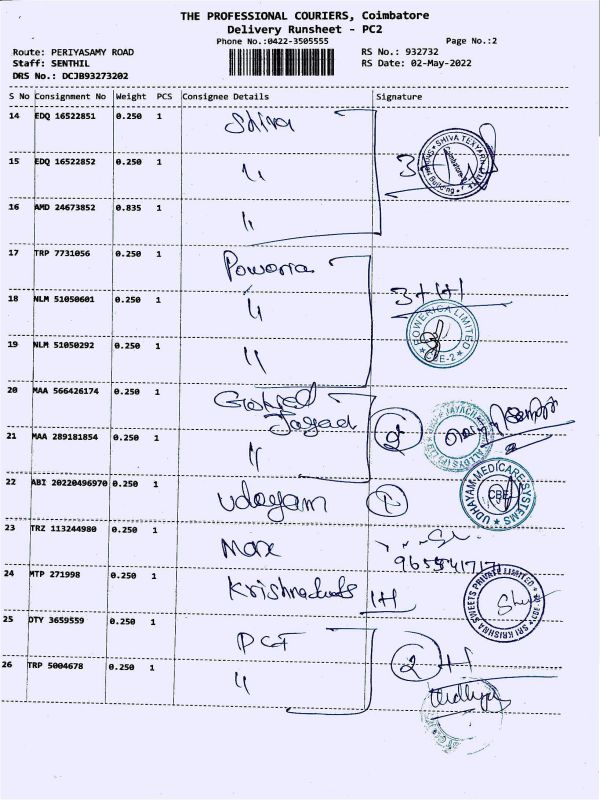 THE PROFESSIONAL COURIERS, Coimbatore
Delivery Runsheet - PC2
Phone No.:0422-3505555 Page No.:2
Route: PERIYASAMY ROAD RS No.: 932732
Staff: SENTHIL RS Date: 02-May-2022
DRS No.: DCJB93273202
S No Consignment No Weight PCS Consignee Details Signature
14 EDQ 16522851 0.250 1 Shiva
15 EDQ 16522852 0.250 1 〃
SHIVA TEXYARN
Coimbatore
16 AMD 24673852 0.835 1 〃
17 TRP 7731056 0.250 1
18 NLM 51050601 0.250 1 〃 3+1H
POWERICA LIMITED
CBE-2
19 NLM 51050292 0.250 1 〃
20 MAA 566426174 0.250 1
21 MAA 289181854 0.250 1 〃 2
22 ABI 20220496970 0.250 1 Udayam 1
UDHAYAM MEDICARE SYSTEMS
CBE
23 TRZ 113244980 0.250 1 Max
24 MTP 271998 0.250 1 1H
SRI KRISHNA SWEETS PRIVATE LIMITED
25 DTY 3659559 0.250 1
26 TRP 5004678 0.250 1 〃 2